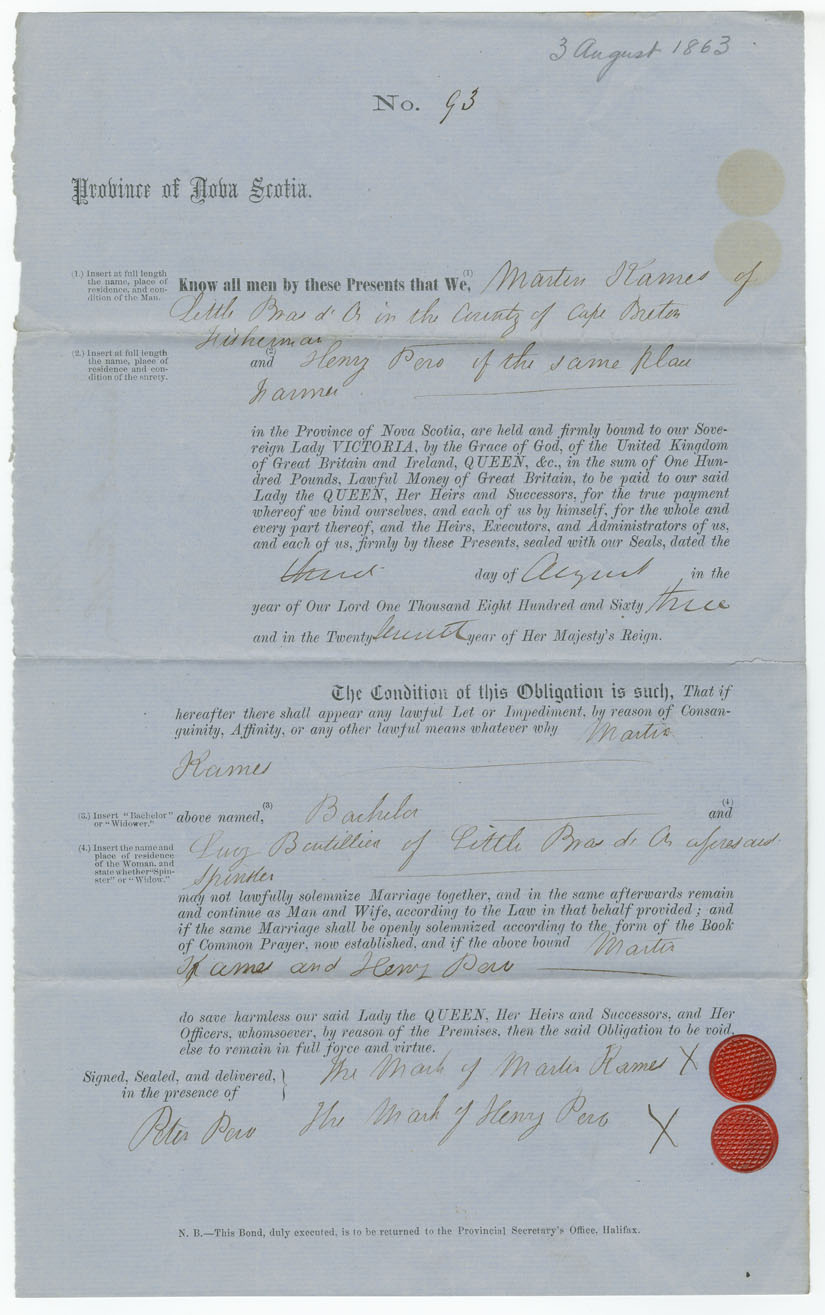 3 August 1863
No. 93
Province of Nova Scotia.
(1.) Insert at full length
the name, place of
residence, and con-
dition of the Man.
Know all men by these Presents that We,(1) Martin Kames of
Little Bras d'Or in the County of Cape Breton
Fisherman
(2.) Insert at full length
the name, place of
residence and con-
dition of the surety.
(2)
and Henry Pero of the same place
Farmer
in the Province of Nova Scotia, are held and firmly bound to our Sove-
reign Lady VICTORIA, by the Grace of God, of the United Kingdom
of Great Britain and Ireland, QUEEN, &c., in the sum of One Hun-
dred Pounds, Lawful Money of Great Britain, to be paid to our said
Lady the QUEEN, Her Heirs and Successors, for the true payment
whereof we bind ourselves, and each of us by himself, for the whole and
every part thereof, and the Heirs, Executors, and Administrators of us,
and each of us, firmly by these Presents, sealed with our Seals, dated the
third day of August in the
year of Our Lord One Thousand Eight Hundred and Sixty three
and in the Twenty seventh year of Her Majesty's Reign.
The Condition of this Obligation is such, That if
hereafter there shall appear any lawful Let or Impediment, by reason of Consan-
guinity, Affinity, or any other lawful means whatever why Martin
Kames
(3.) Insert "Bachelor"
or "Widower."
above named,(3) Bachelor (4) and
(4.) Insert the name and
place of residence
of the Woman, and
state whether "Spin-
ster" or "Widow."
Lucy Boutillier of Little Bras d'Or aforesaid
Spinster
may not lawfully solemnize Marriage together, and in the same afterwards remain
and continue as Man and Wife, according to the Law in that behalf provided; and
if the same Marriage shall be openly solemnized according to the form of the Book
of Common Prayer, now established, and if the above bound Martin
Kames and Henry Pero
do save harmless our said Lady the QUEEN, Her Heirs and Successors, and Her
Officers, whomsoever, by reason of the Premises, then the said Obligation to be void,
else to remain in full force and virtue.
Signed, Sealed, and delivered,
in the presence of
The Mark of Martin Kames X
Peter Pero The Mark of Henry Pero X
N. B.—This Bond, duly executed, is to be returned to the Provincial Secretary's Office, Halifax.